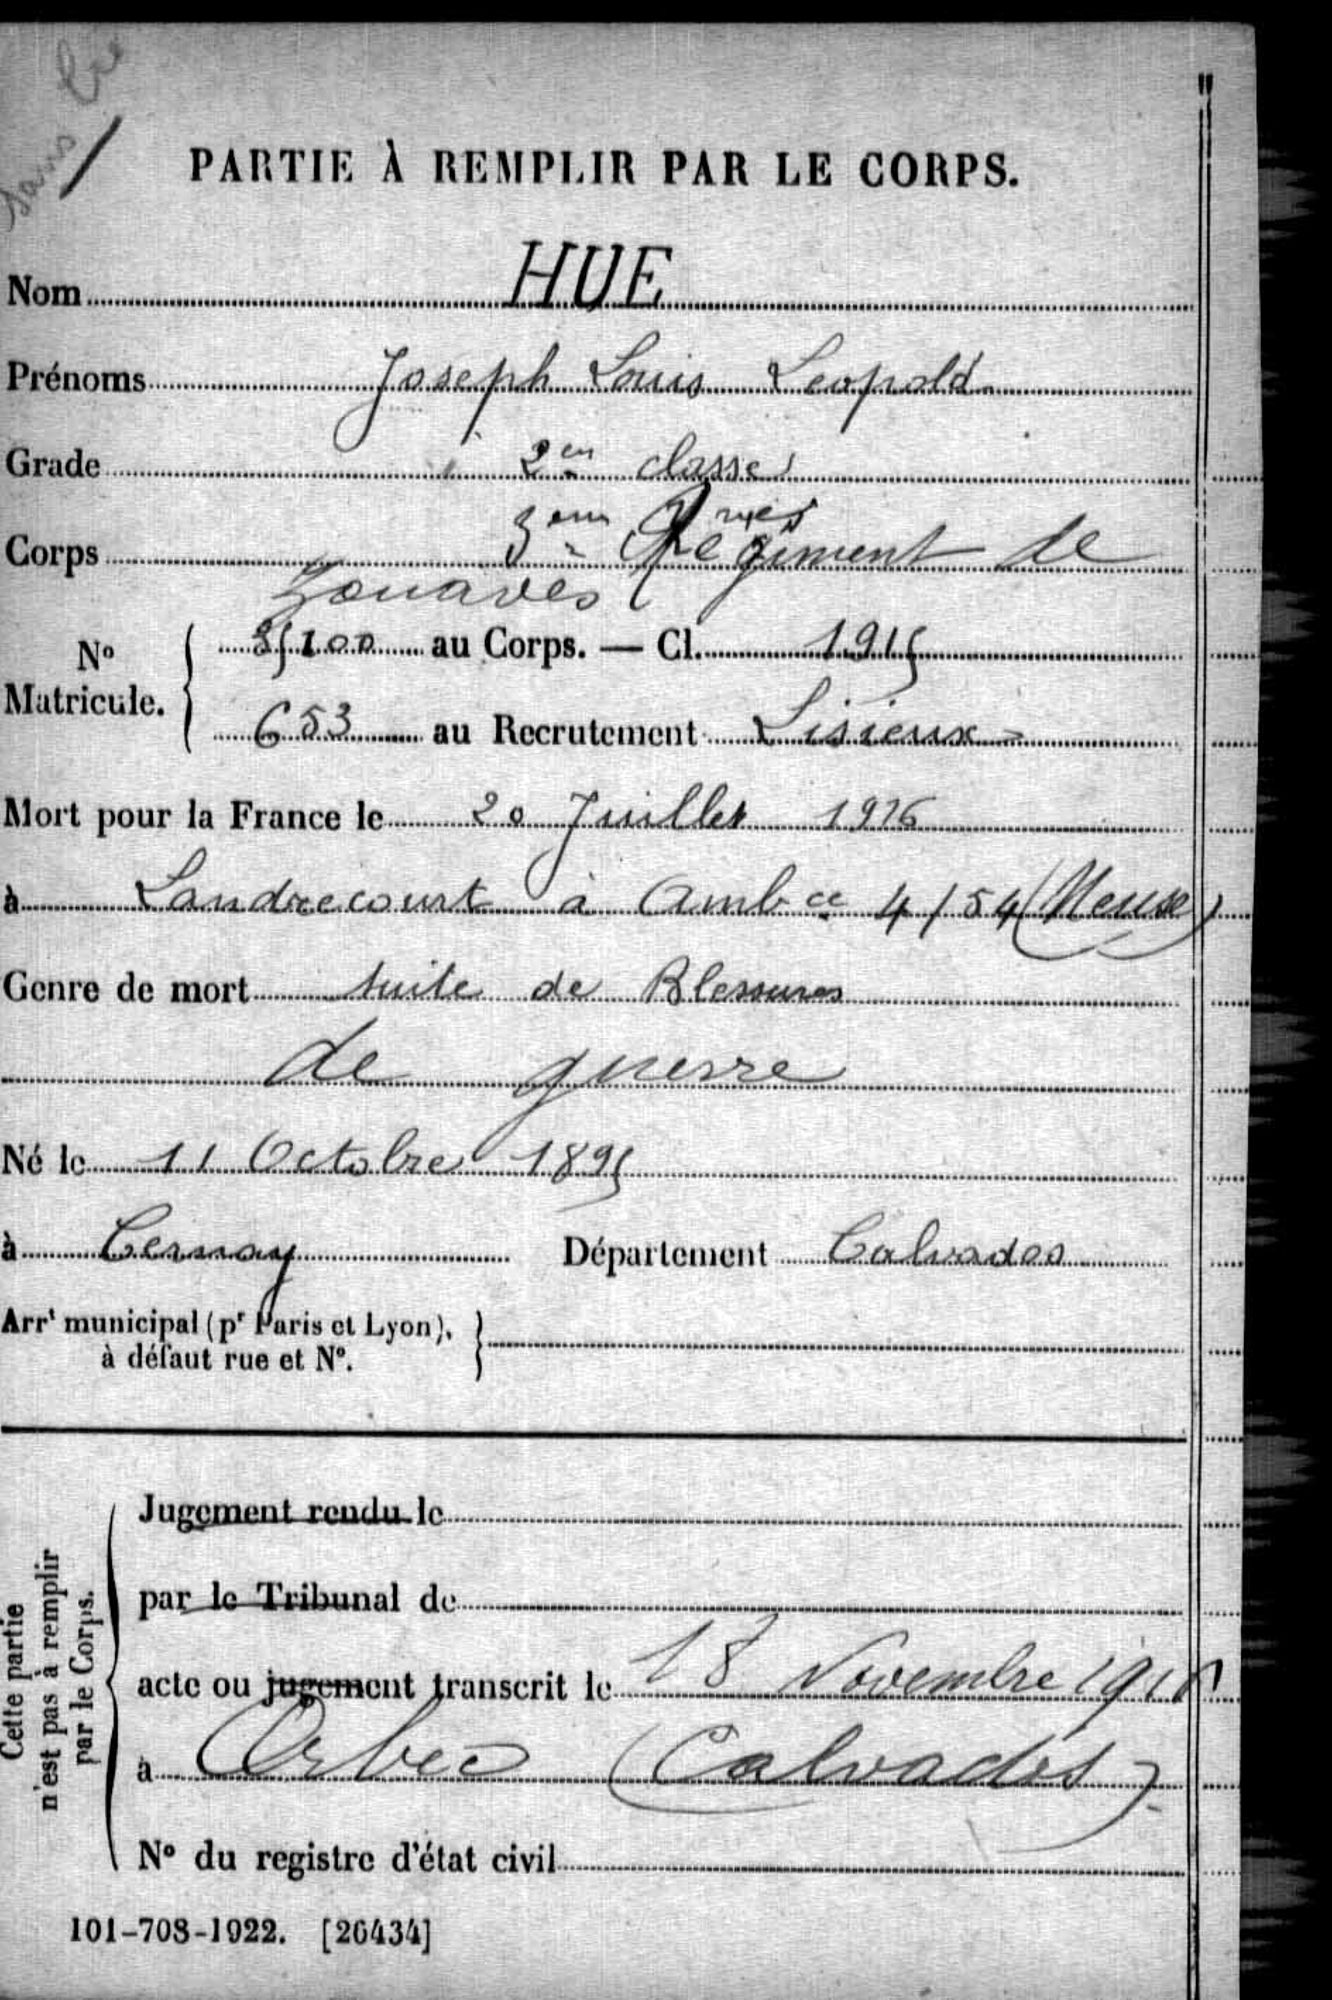 PARTIE À REMPLIR PAR LE CORPS.
Nom HUE
Prénoms Joseph Louis Leopold
Grade 2en classe
Corps 3em Régiment de
Zouaves
No Matricule. 25100 au Corps. — Cl. 1915
653 au Recrutement Lisieux
Mort pour la France le 20 Juillet 1916
à Landrecourt à Ambce 4/54 (Meuse)
Genre de mort suite de Blessures
de guerre
Né le 11 Octobre 1895
à Cernay Département Calvados
Arrt municipal (pr Paris et Lyon),
à défaut rue et No.
Cette partie
n'est pas à remplir
par le Corps.
Jugement rendu le
par le Tribunal de
acte ou jugement transcrit le 18 Novembre 1916
à Orbec (Calvados)
No du registre d'état civil
101-708-1922. [26434]